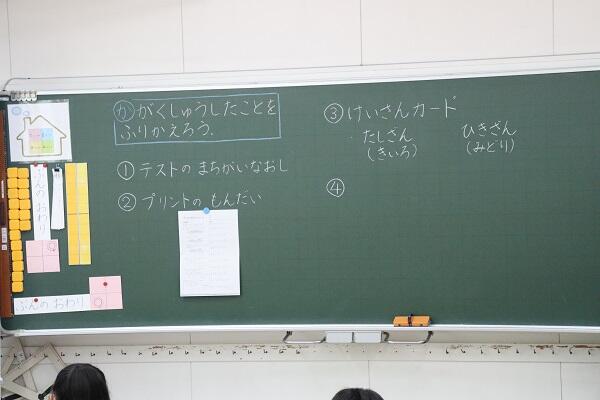 か がくしゅうしたことを
ふりかえろう.
① テストの まちがいなおし
② プリントの もんだい
③ けいさんカード
たしざん
(きいろ)
ひきざん
(みどり)
④
ぶんのおわり
ぶんの おわり